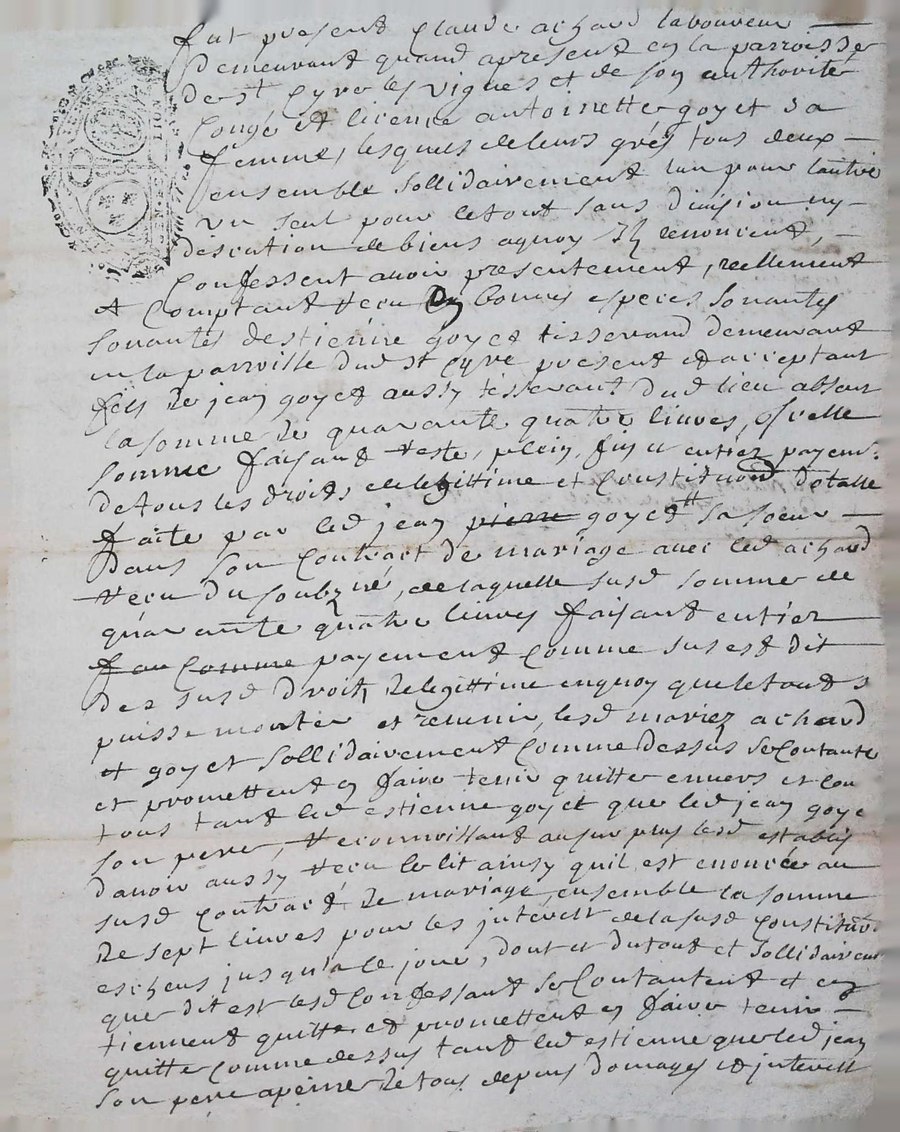 fut present Claude achard laboureur
Demeurant quand apresent en la parroisse
de st Cyre les vignes et de son authorité
Congé et licence antoinette goyet sa
femme, lesquels de leurs grés tous deux
ensemble sollidairement lun pour lautre
un seul pour le tout sans division ny
descution de biens aquoy ilz renoncent,
Confessent avoir presentement, reellement
et Comptant receu en bonnes especes sonantes
sonantes destienne goyet tisserand demeurant
en la parroisse dud st Cyre present et acceptant
fils de jean goyet aussy tisserant dud lieu absent
la somme de quarante quatre livres, icelle
somme faisant reste, plein, fin et entier payem.
de tous les droits de legittime et Constitution dotalle
faite par led jean pierre goyet a sa soeur
Dans son Contract de mariage avec led achard
receu du soubzné, de laquelle susd somme de
quarante quatre livres faisant entier
fai Comme payement Comme sus est dit
des susd droits de legittime enquoy que le tout
puisse monter et revenir, lesd mariez achard
et goyet sollidairement Comme dessus se Contante
et promettent en faire tenir quitter envers et Con
tous tant led estienne goyet que led jean goye
son pere, reconnoissant au sur plus lesd establis
davoir aussy receu le lit ainsy quil est enoncée au
susd Contract de mariage, ensemble la somme
de sept livres pour les jnterest de la susd Constitution
escheus jusqu'a ce jour, dont et du tout et sollidairem
que dit est lesd Confessant se Contantent et en
tiennent quitte et promettent en faire tenir
quitte comme dessus tant led estienne que led jean
son pere apeine de tous depens domages et jnterest